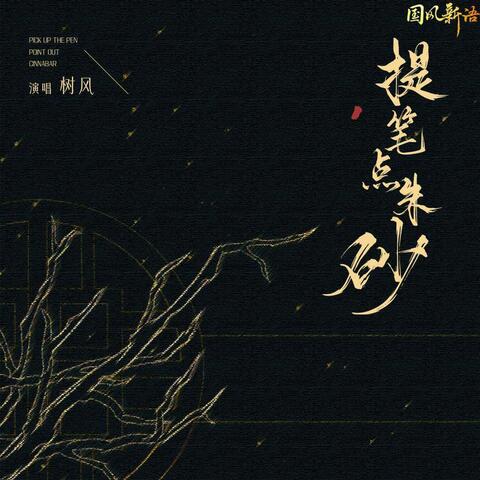 国风新语
PICK UP THE PEN
POINT OUT
CINNABAR
演唱 树风
提笔点朱砂